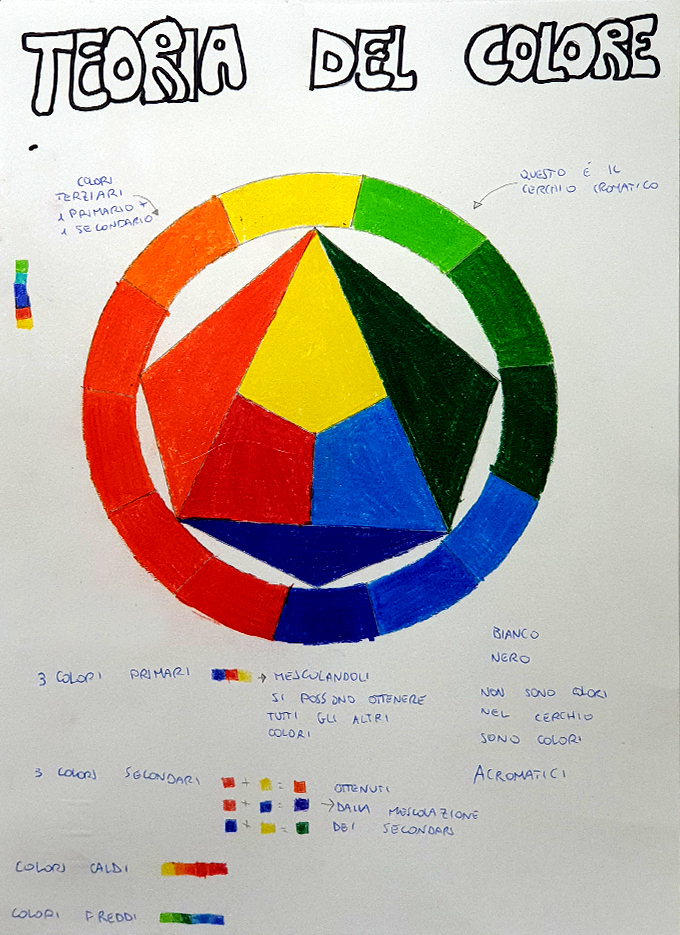 TEORIA DEL COLORE
COLORI
TERZIARI
1 PRIMARIO +
1 SECONDARIO
QUESTO É IL
CERCHIO CROMATICO
BIANCO
NERO
NON SONO COLORI
NEL CERCHIO
SONO COLORI
ACROMATICI
3 COLORI PRIMARI → MESCOLANDOLI
SI POSSONO OTTENERE
TUTTI GLI ALTRI
COLORI
3 COLORI SECONDARI
+ =
+ =
+ =
OTTENUTI
→ DALLA MESCOLAZIONE
DEI SECONDARI
COLORI CALDI
COLORI FREDDI